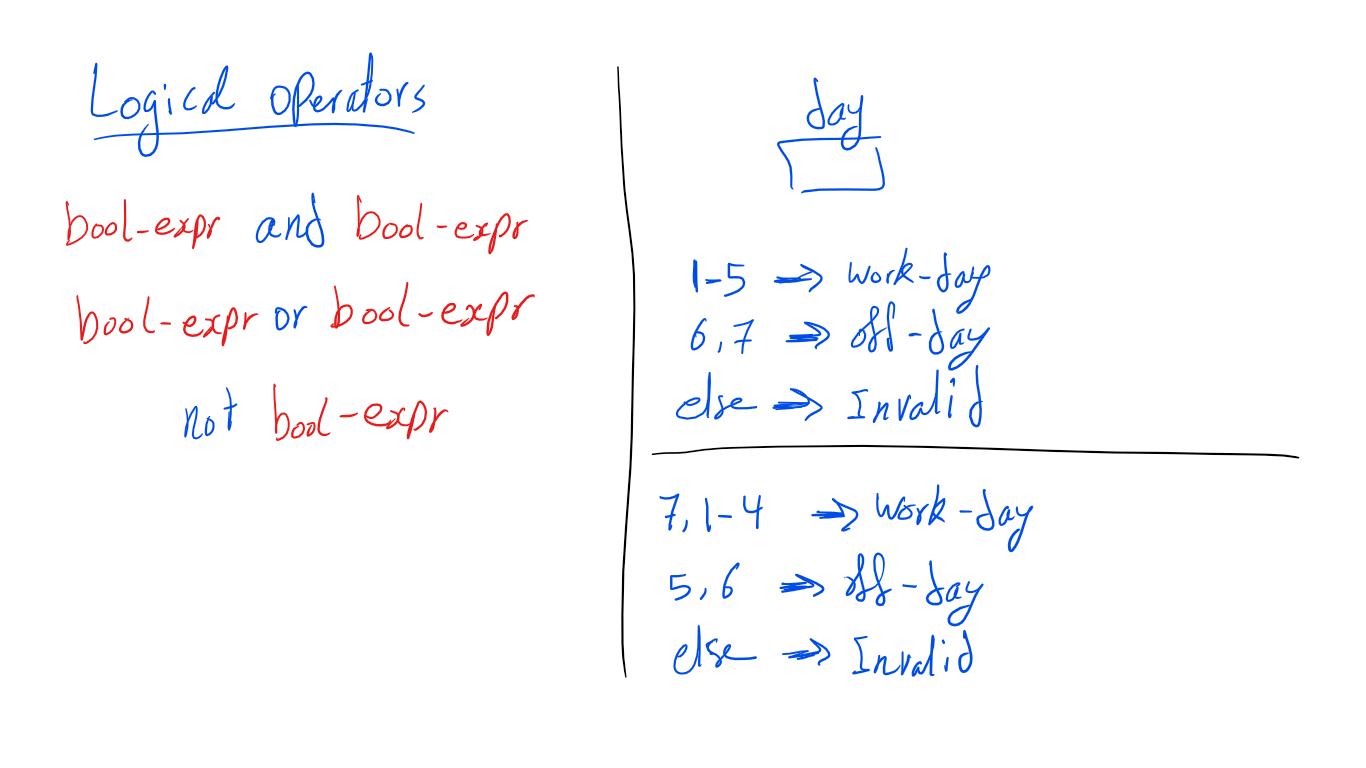 Logical operators
bool-expr and bool-expr
bool-expr or bool-expr
not bool-expr
day
1-5 ⇒ work-day
6,7 ⇒ off-day
else ⇒ Invalid
7,1-4 ⇒ work-day
5,6 ⇒ off-day
else ⇒ Invalid